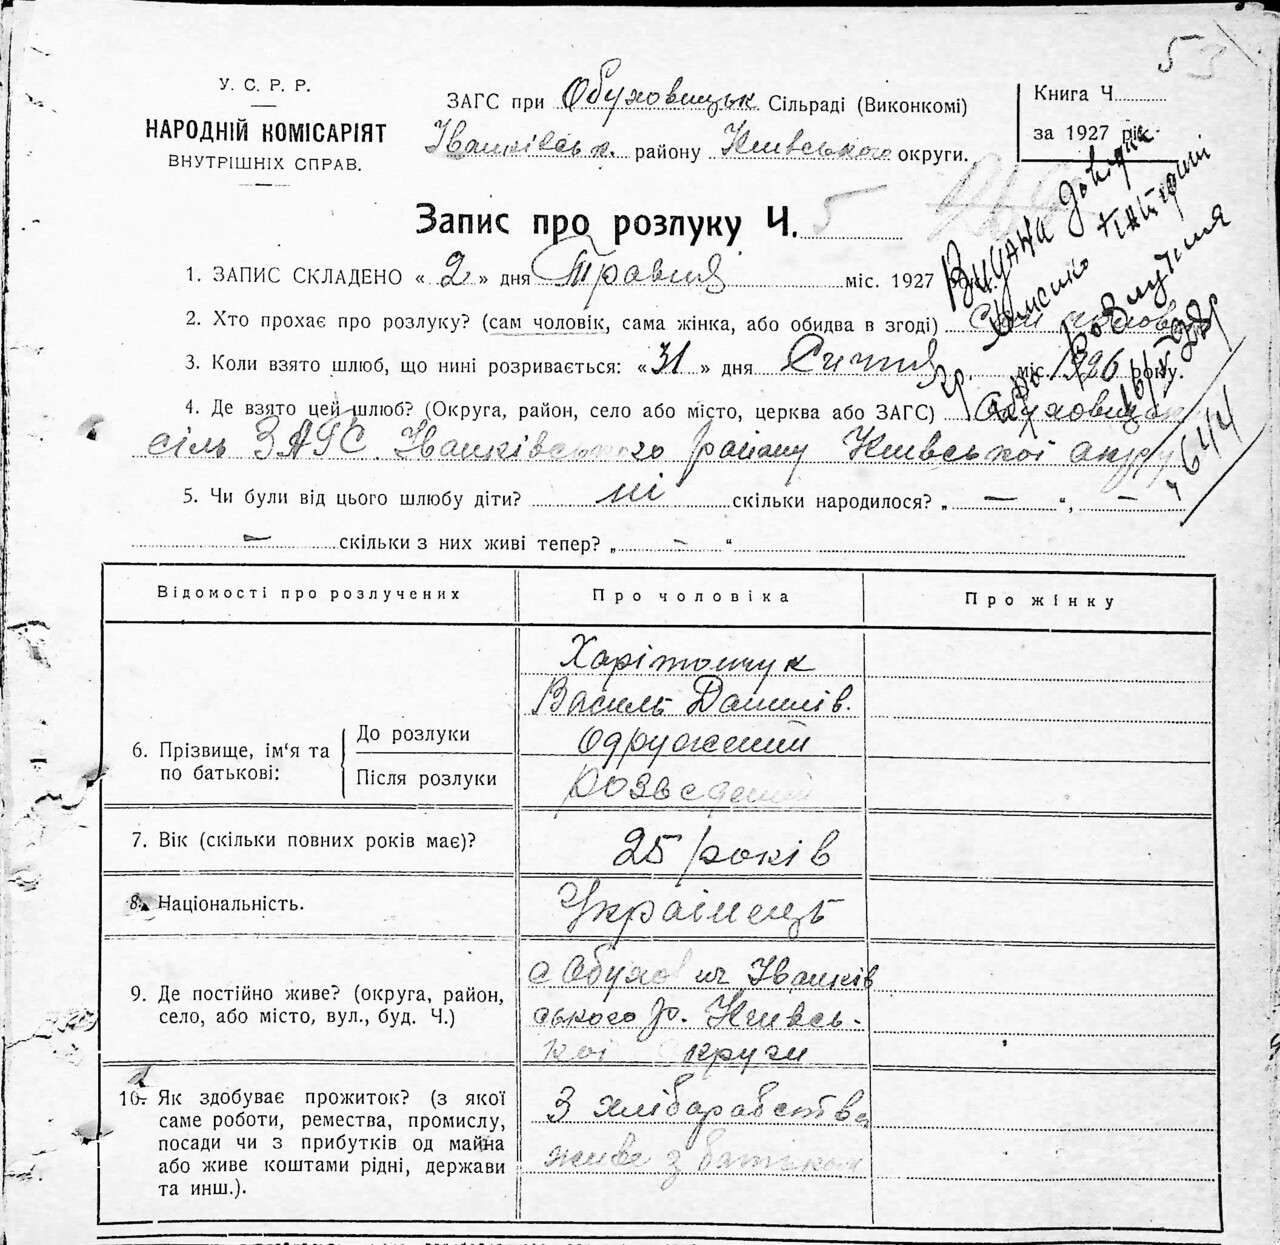 53
У. С. Р. Р.
НАРОДНІЙ КОМІСАРІЯТ
ВНУТРІШНІХ СПРАВ.
ЗАГС при Обуховицьк Сільраді (Виконкомі)
Іванківськ. району Київського округи.
Книга Ч.
за 1927 рік
Запис про розлуку Ч. 5
Видана довідка
про розлучення
16/V 28р
644
1. ЗАПИС СКЛАДЕНО « 2 » дня Травня міс. 1927 року.
2. Хто прохає про розлуку? (сам чоловік, сама жінка, або обидва в згоді) Сам чоловік
3. Коли взято шлюб, що нині розривається: « 31 » дня Січня міс. 1926 року.
4. Де взято цей шлюб? (Округа, район, село або місто, церква або ЗАГС) Обуховицьк
сіль ЗАГС. Іванківського району Київської округи
5. Чи були від цього шлюбу діти? ні скільки народилося? „ — “, —
— скільки з них живі тепер? „ — “
Відомості про розлучених
Про чоловіка
Про жінку
6. Прізвище, ім‘я та по батькові:
До розлуки
Після розлуки
Харітончук
Василь Данилів.
Одружений
розведений
7. Вік (скільки повних років має)?
25 років
8. Національність.
Українець
9. Де постійно живе? (округа, район,
село, або місто, вул., буд. Ч.)
с Обухович Іванків
ського р. Київсь-
кої округи
10. Як здобуває прожиток? (з якої
саме роботи, ремества, промислу,
посади чи з прибутків од майна
або живе коштами рідні, держави
та инш.).
З хліборабства
живе з батьком